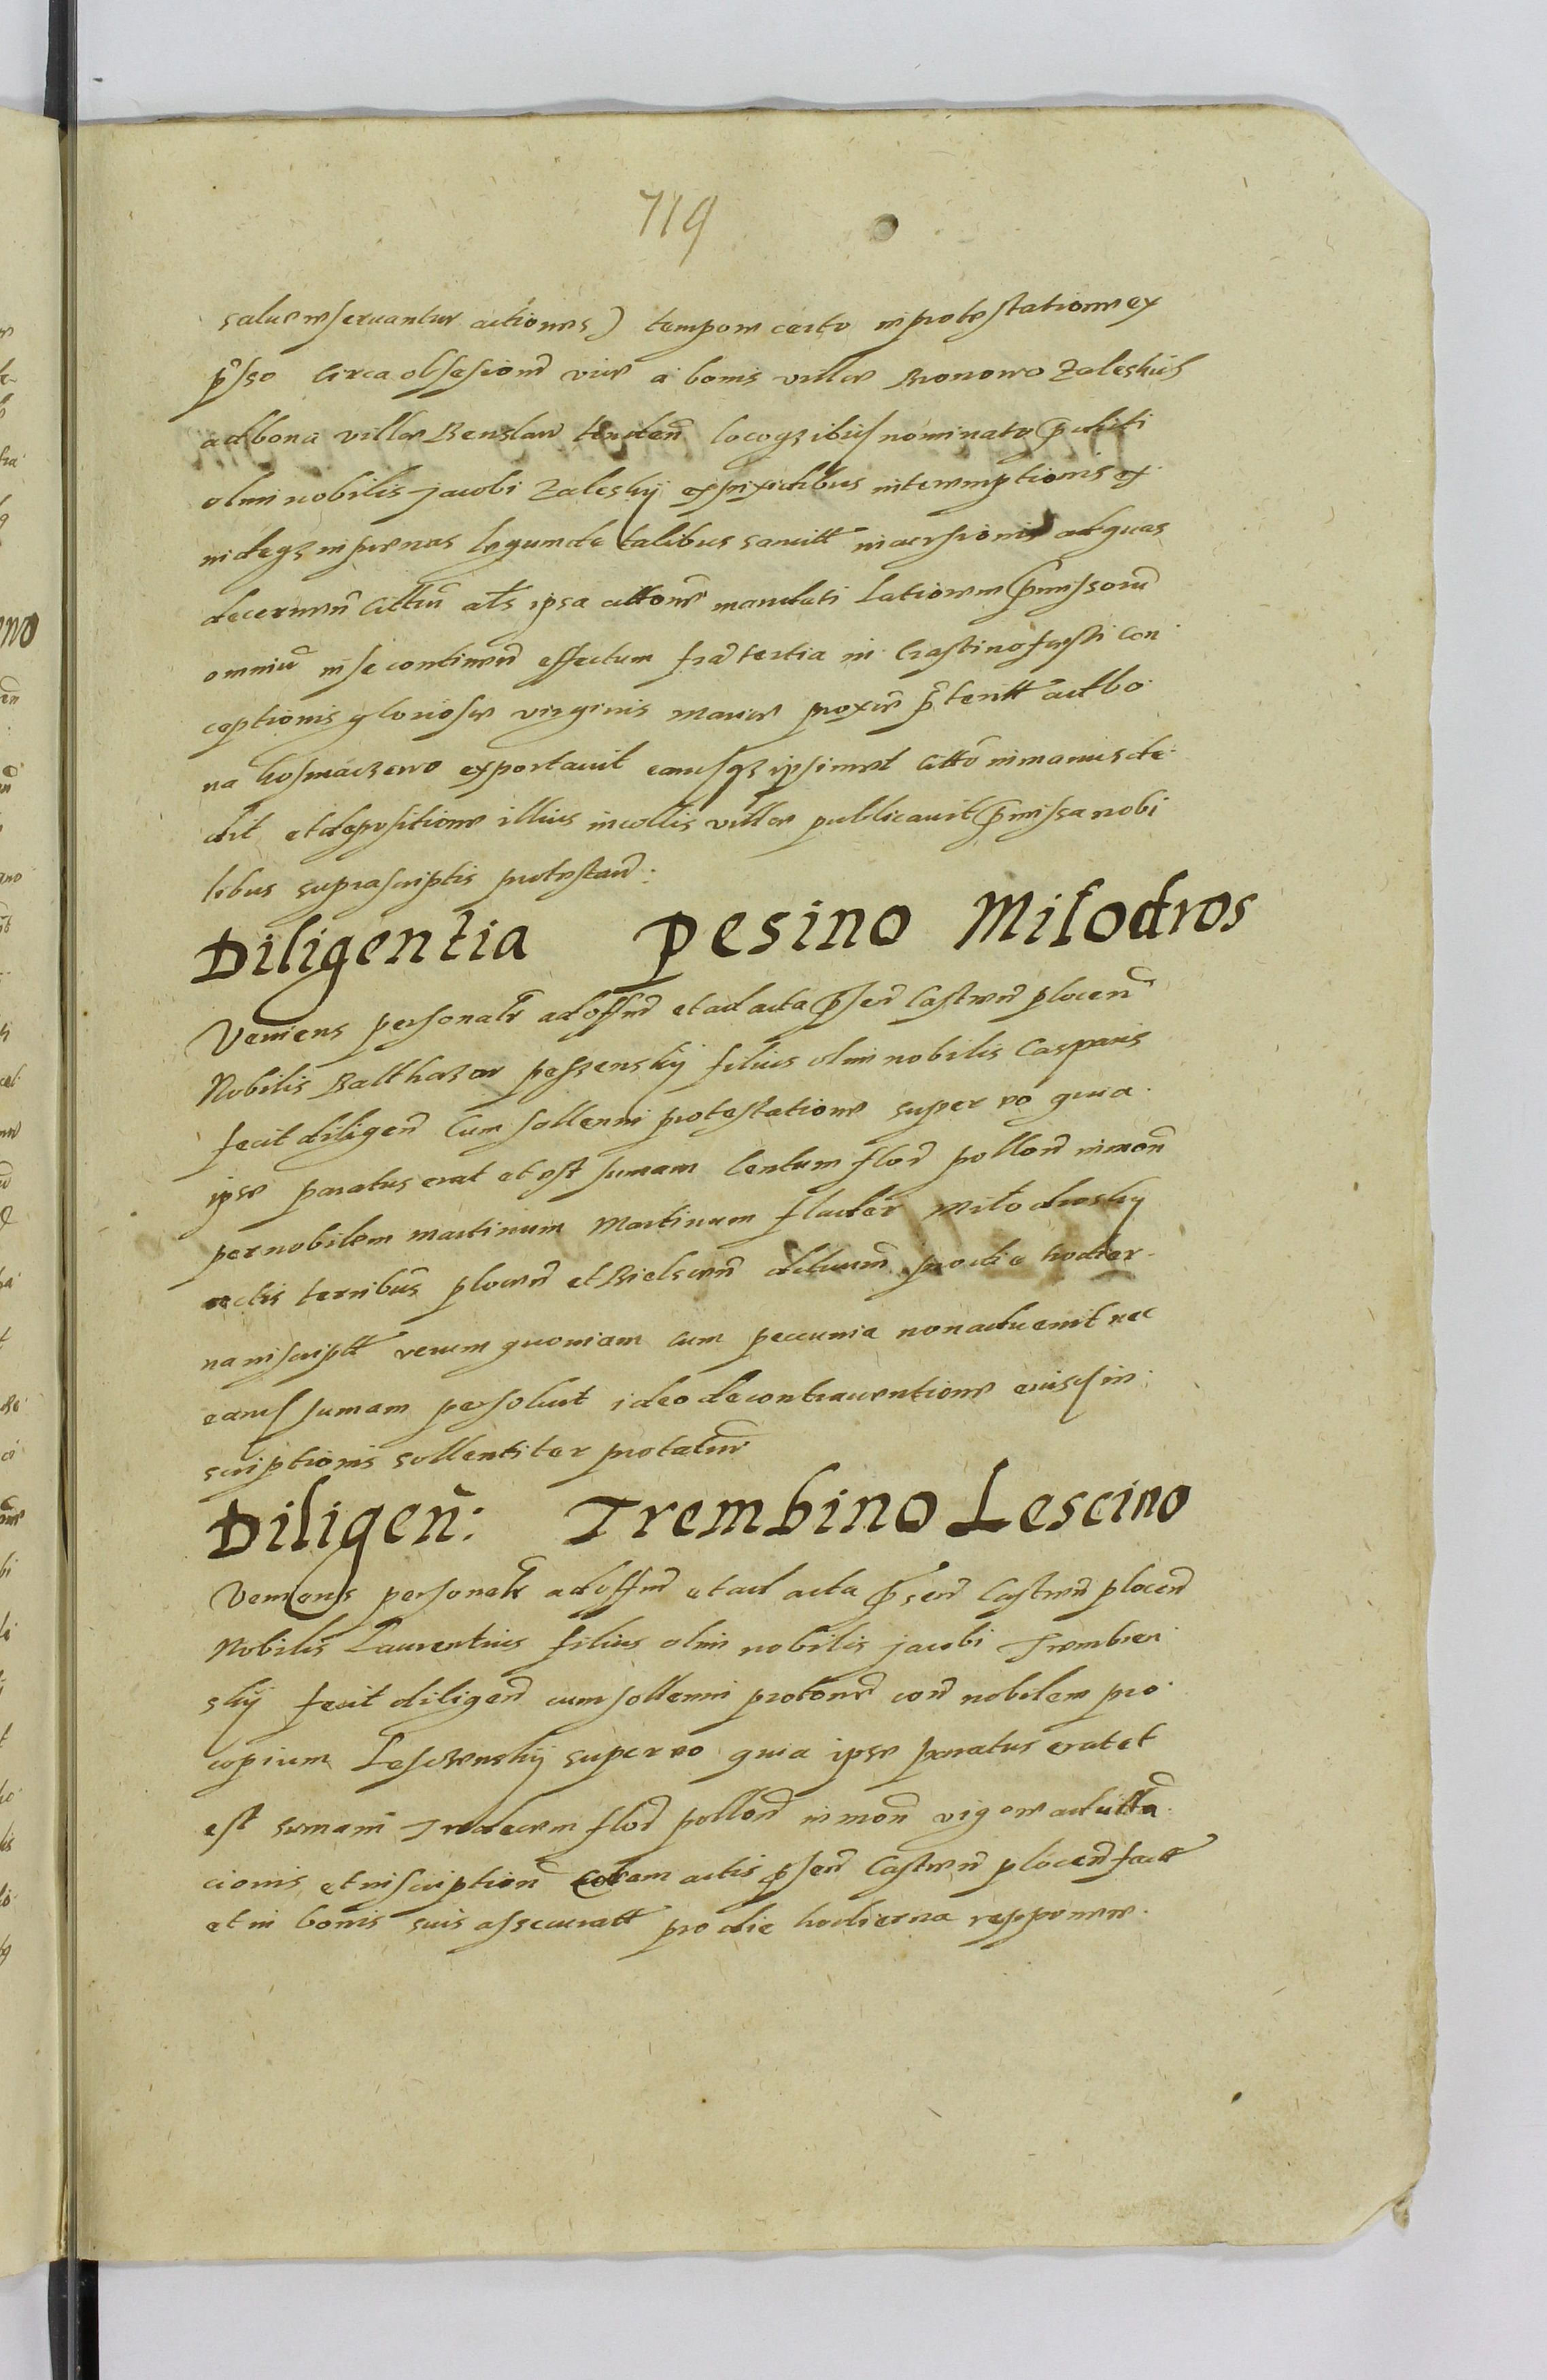 719
salvae reservantur actiones) tempore certo in protestatione ex
p̃sso circa obsesionē viae a bonis villae Bronowo Zaleskich
ad bona villae Renslaw tendeñ locoqz ibid nominato p̃dicti
olim nobilis Jacobi Zalesky ex pixidibus interemptionis ex
indeqz in poenas legum de talibus sancitt incursionis ad quas
decernen̄ Citatiū als ipsa actione mandati Lationem p̃missorū
omniū in se continen̄ effectum fr̃a tertia in Crastino festi Con
ceptionis gloriosae virginis Mariae proxime p̃teritt ad bo
na Kosmaczewo exportavit eamqz ipsimet Citto in manus de
dit et depositione illius incolis villae publicavit p̃missa nobi
libus suprascriptis protestan̄:
Diligentia Pesino Miłodros
Veniens personalr̃ ad offm̄ et ad acta p̃sen̄ Castren̄ plocen̄
Nobilis Balthazar peszensky filius olim nobilis Casparis
fecit diligen̄ Cum sollenni protestatione super eo quia
ipse paratus erat et est sumam Centum flor̄ pollon̄ in mon̄
per nobilem martinum Martinum Miłodrosky
actis terribūs plocen̄ et Bielscen̄ pro die hodier
na inscriptt verum quoniam cum peccunia non advenit nec
eand sumam persolvit ideo de contraventione eiusd in
scriptionis sollenniter protatur
Diligeñ: Trembino Lescino
Veniens personalr̃ ad offm̄ et ad acta p̃sen̄ Castren̄ plocen̄
Nobilis Laurentius filius olim nobilis Jacobi Trembien
sky fecit diligen̄ cum sollenni protone con̄ nobilem pro
copium Lesczensky super eo quia ipse paratus erat et
est sumam Tredecem flor̄ pollon̄ in mon̄ vigore
cionis et inscription̄ coram actis p̃sen̄ Castren̄ plocen̄ fact
et in bonis suis assecuratt pro die hodierna repponere